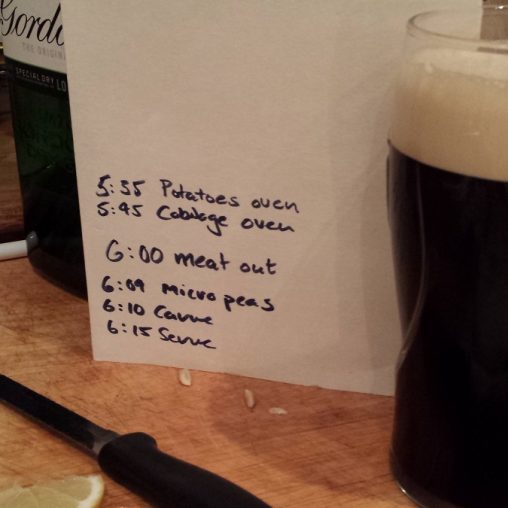 Gordo
THE ORIGIN
SPECIAL DRY LO
5:35 Potatoes oven
5:45 Cabbage oven
6:00 meat out
6:09 micro peas
6:10 Carve
6:15 Serve